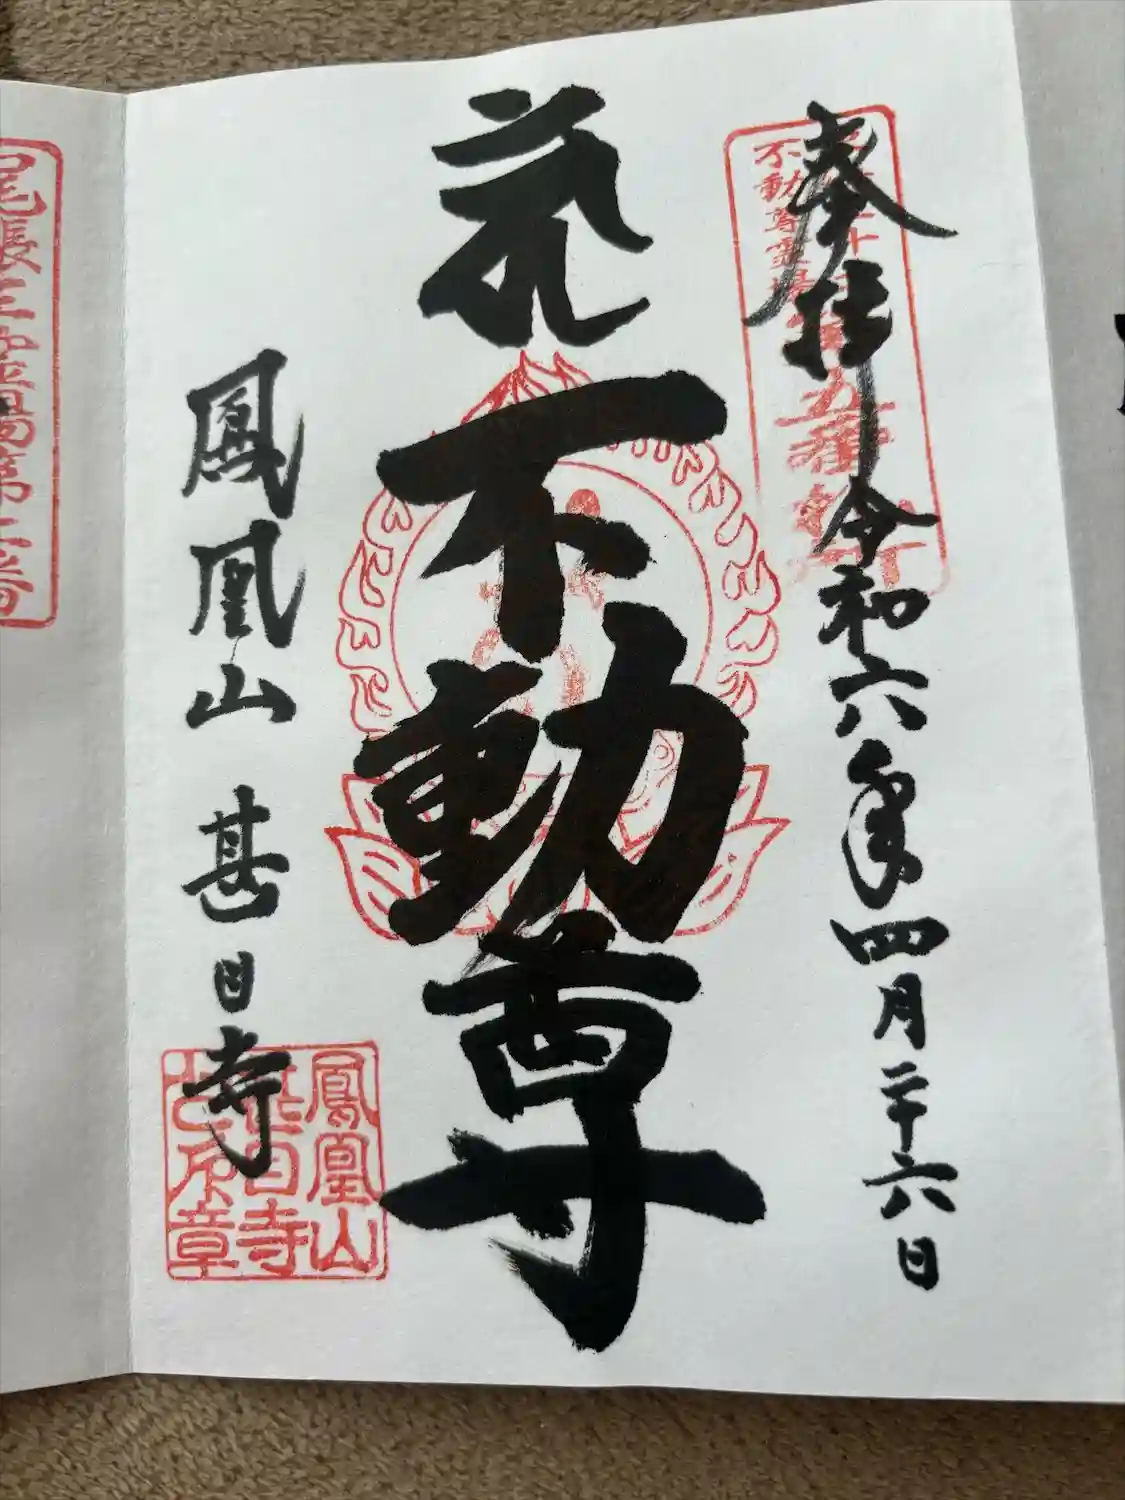 奉拝 令和六年四月二十六日
不動尊霊場
不動尊
鳳凰山 甚目寺
鳳凰山
甚目寺
之印章
尾張三霊場第